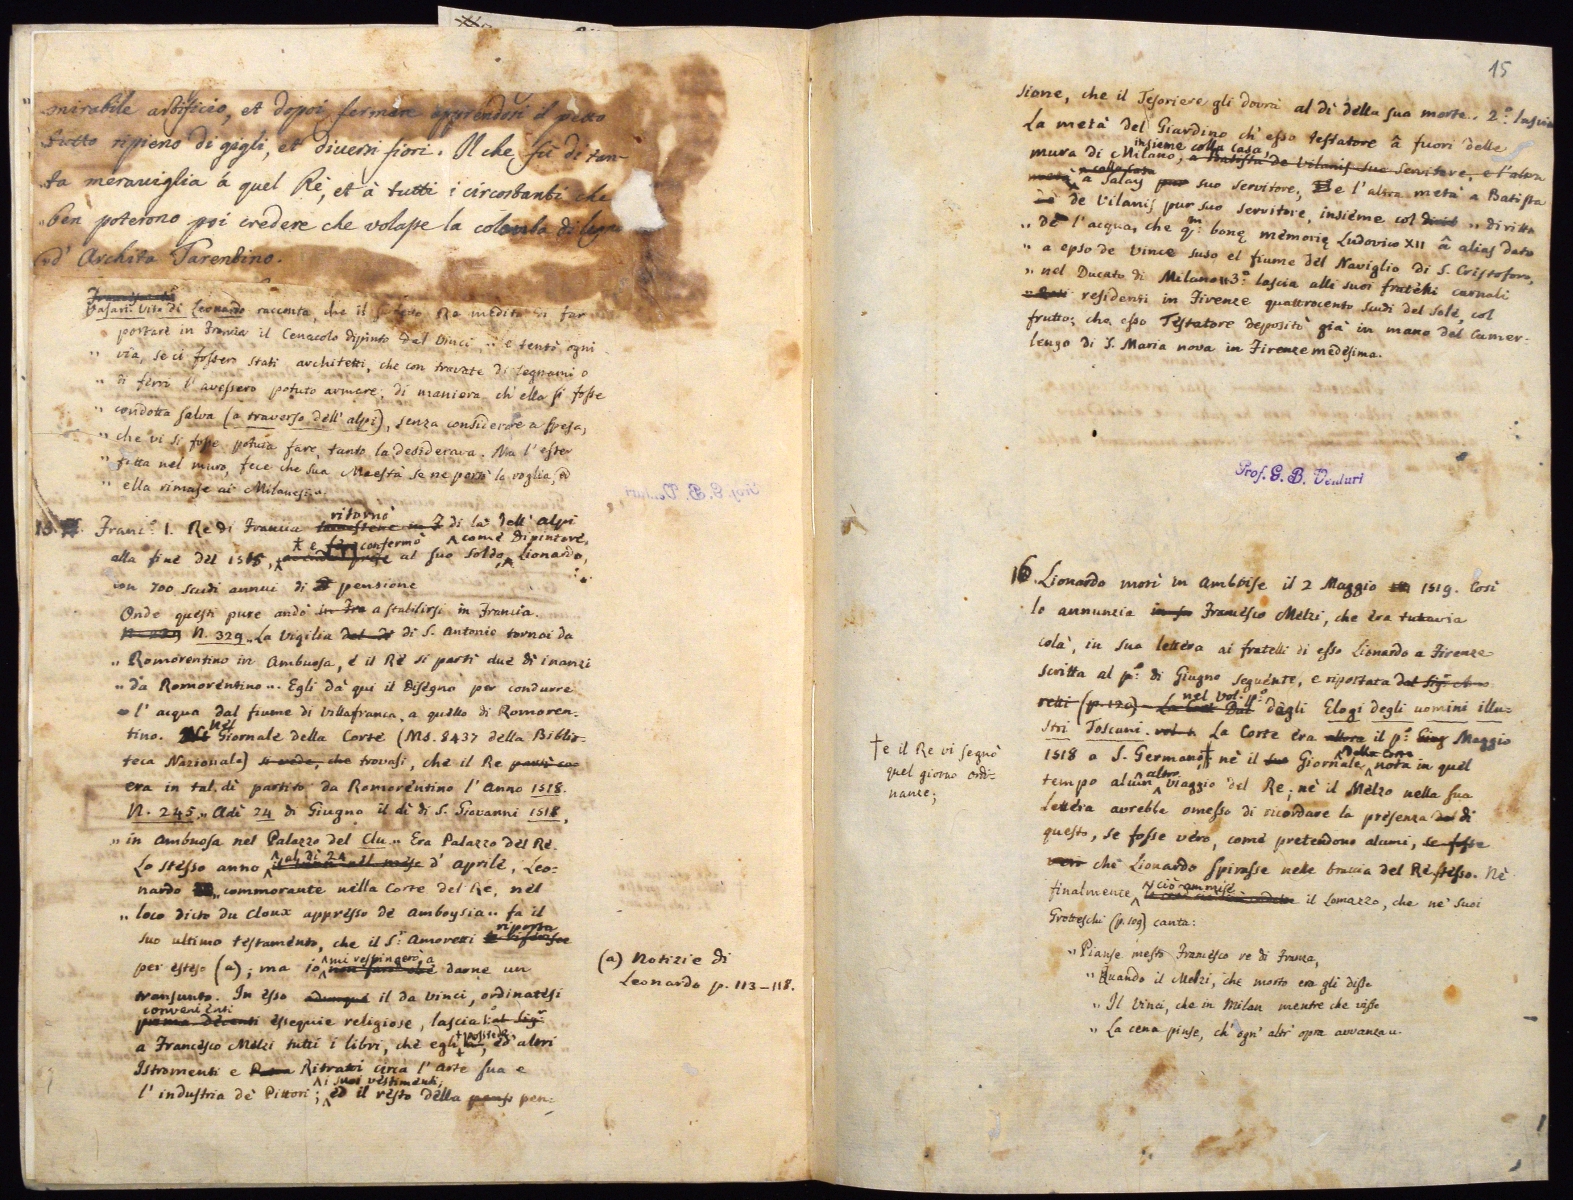 mirabile artificio, et dopoi fermare apprendosi il petto
tutto ripieno di gigli, et diversi fiori. Il che fù di tan-
ta meraviglia à quel Rè, et à tutti i circostanti che
ben poterono poi credere che volasse la colomba di legno
d' Archita Tarentino.
Vasari: Vita di Leonardo racconta, che il Re medito di far
portare in Francia il Cenacolo dipinto dal Vinci „ e tentò ogni
„ via, se ci fossero stati architetti, che con travate di legnami o
„ di ferri l' avessero potuto armare; di maniera ch' ella si fosse
„ condotta salva (a traverso dell' alpi), senza considerare a spesa,
„ che vi si fosse potuta fare, tanto la desiderava. Ma l' esser
„ fatta nel muro, fece che sua Maestà se ne portò la voglia, ed
„ ella rimase ai Milanesi „.
15. Franc.º I. Re di Francia ritornò di là dell' alpi
alla fine del 1515, e confermò al suo soldo, come Dipintore, Lionardo,
con 700 scudi annui di pensione
Onde questi pure andò a stabilirsi in Francia.
N. 329. „ La Vigilia di S. Antonio tornai da
„ Romorentino in Ambuosa, e il Rè si parti due dì inanzi
„ da Romorentino „. Egli dà qui il Disegno per condurre
l' acqua dal fiume di Villafranca, a quello di Romoren-
tino. Nel Giornale della Corte (Ms. 8437 della Biblio-
teca Nazionale) trovasi, che il Re
era in tal dì partito da Romorentino l' Anno 1518.
N. 245. „ Adì 24 di Giugno il dì di S. Giovanni 1518,
„ in Ambuosa nel Palazzo del Clu „ Era Palazzo del Re.
Lo stesso anno, ali dì 24 d' aprile, Leo-
nardo „ commorante nella Corte del Re, nel
„ loco dicto du Cloux appresso de Amboysia „ fa il
suo ultimo testamento, che il S.r Amoretti riporta
per esteso (a); ma io mi restringerò a darne un
transunto. In esso il da Vinci, ordinatesi
convenienti esequie religiose, lascia
a Francesco Melzi tutti i libri, che egli possiede, ed altri
Istromenti e Ritratti circa l' arte sua e
l' industria de Pittori; i suoi vestimenti, ed il resto della pen-
(a) Notizie di
Leonardo p. 113–118.
15
sione, che il Tesoriere gli dovrà al dì della sua morte. 2.º Lascia
la metà del Giardino ch' esso testatore â fuori delle
mura di Milano, insieme colla casa, a Batista de Vilanis suo Servitore, e l'altra
a Salay suo servitore, e l' altra metà a Batista
de Vilanis pur suo servitore, insieme col „ diritto
„ de l' acqua, che q.m bonę memorię Ludovico XII â alias dato
„ a epso de Vince suso el fiume del Naviglio di S. Cristoforo,
„ nel Ducato di Milano „ 3.º lascia alli suoi fratelli carnali
residenti in Firenze quattrocento scudi del Sole, col
frutto; che esso Testatore depositò già in mano del Camer-
lengo di S. Maria nova in Firenze medesima.
Prof. G. B. Venturi
16. Lionardo morì in Amboise il 2 Maggio 1519. Così
lo annunzia Francesco Melzi, che era tuttavia
colà, in sua lettera ai fratelli di esso Lionardo a Firenze
scritta al p.º di Giugno seguente, e riportata
nel vol. p.º degli Elogi degli uomini illu-
stri Toscani. La Corte era il p.º Maggio
1518 a S. Germano† nè il Giornale della Corte nota in quel
tempo alcun altro viaggio del Re; nè il Melzo nella sua
Lettera avrebbe omesso di ricordare la presenza di
questo, se fosse vero, come pretendono alcuni,
che Lionardo spirasse nelle braccia del Rè stesso. Nè
finalmente ciò ammise il Lomazzo, che ne' suoi
Grotteschi (p. 109) canta:
„ Pianse mesto Francesco re di Franza,
„ Quando il Melzi, che morto era gli disse
„ Il Vinci, che in Milan mentre che visse
„ La cena pinse, ch' ogn' altr' opra avvanza „.
† e il Re vi segnò
quel giorno ordi-
nanze;